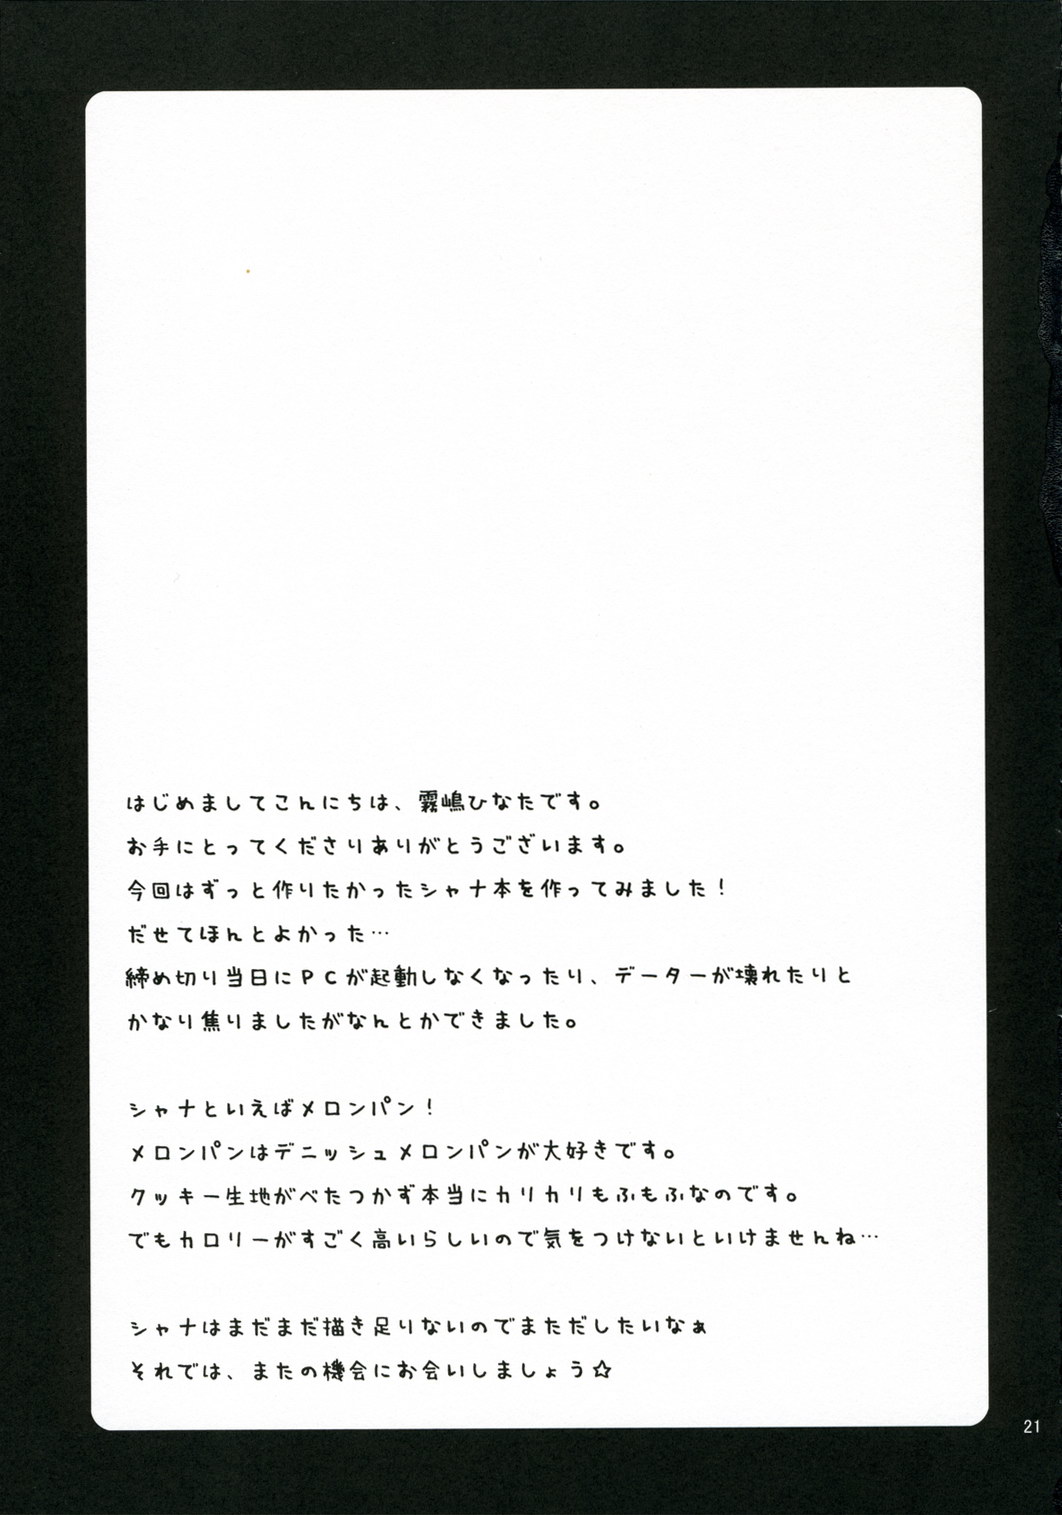 はじめましてこんにちは、霧嶋ひなたです。
お手にとってくださりありがとうございます。
今回はずっと作りたかったシャナ本を作ってみました！
だせてほんとよかった…
締め切り当日にＰＣが起動しなくなったり、データーが壊れたりと
かなり焦りましたがなんとかできました。
シャナといえばメロンパン！
メロンパンはデニッシュメロンパンが大好きです。
クッキー生地がべたつかず本当にカリカリもふもふなのです。
でもカロリーがすごく高いらしいので気をつけないといけませんね…
シャナはまだまだ描き足りないのでまただしたいなぁ
それでは、またの機会にお会いしましょう☆
21